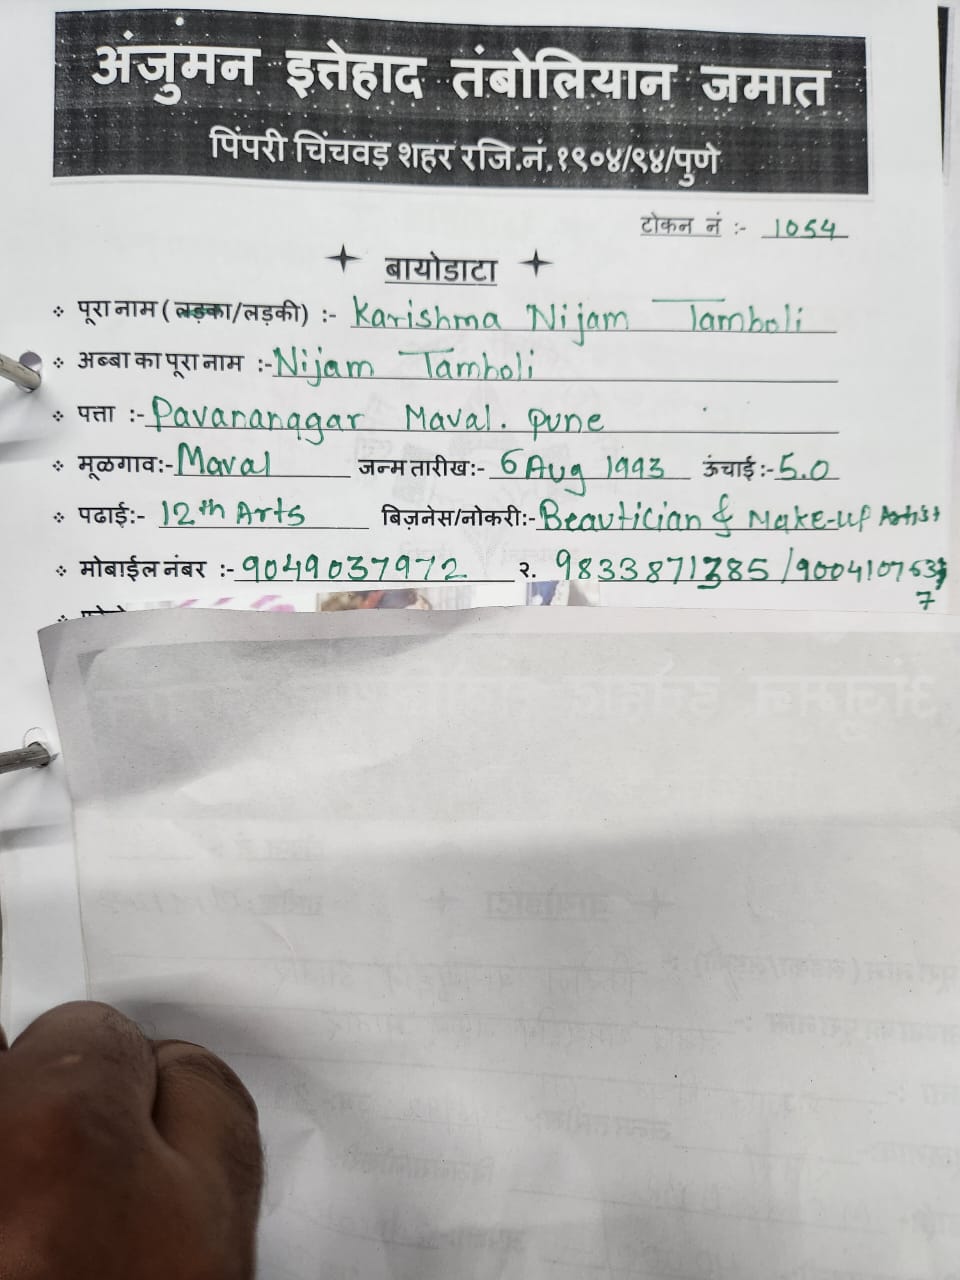 अंजुमन इत्तेहाद तंबोलियान जमात
पिंपरी चिंचवड़ शहर रजि.नं.१९०४/९४/पुणे
टोकन नं :- 1054
बायोडाटा
पूरा नाम (लड़का/लड़की) :- Karishma Nijam Tamboli
अब्बा का पूरा नाम :- Nijam Tamboli
पत्ता :- Pavananagar Maval. pune
मूळगाव:- Maval जन्म तारीख:- 6 Aug 1993 ऊंचाई:- 5.0
पढाई:- 12th Arts बिज़नेस/नोकरी:- Beautician & Make-up Artist
मोबाईल नंबर :- 9049037972 २. 9833871385 /9004107637
7